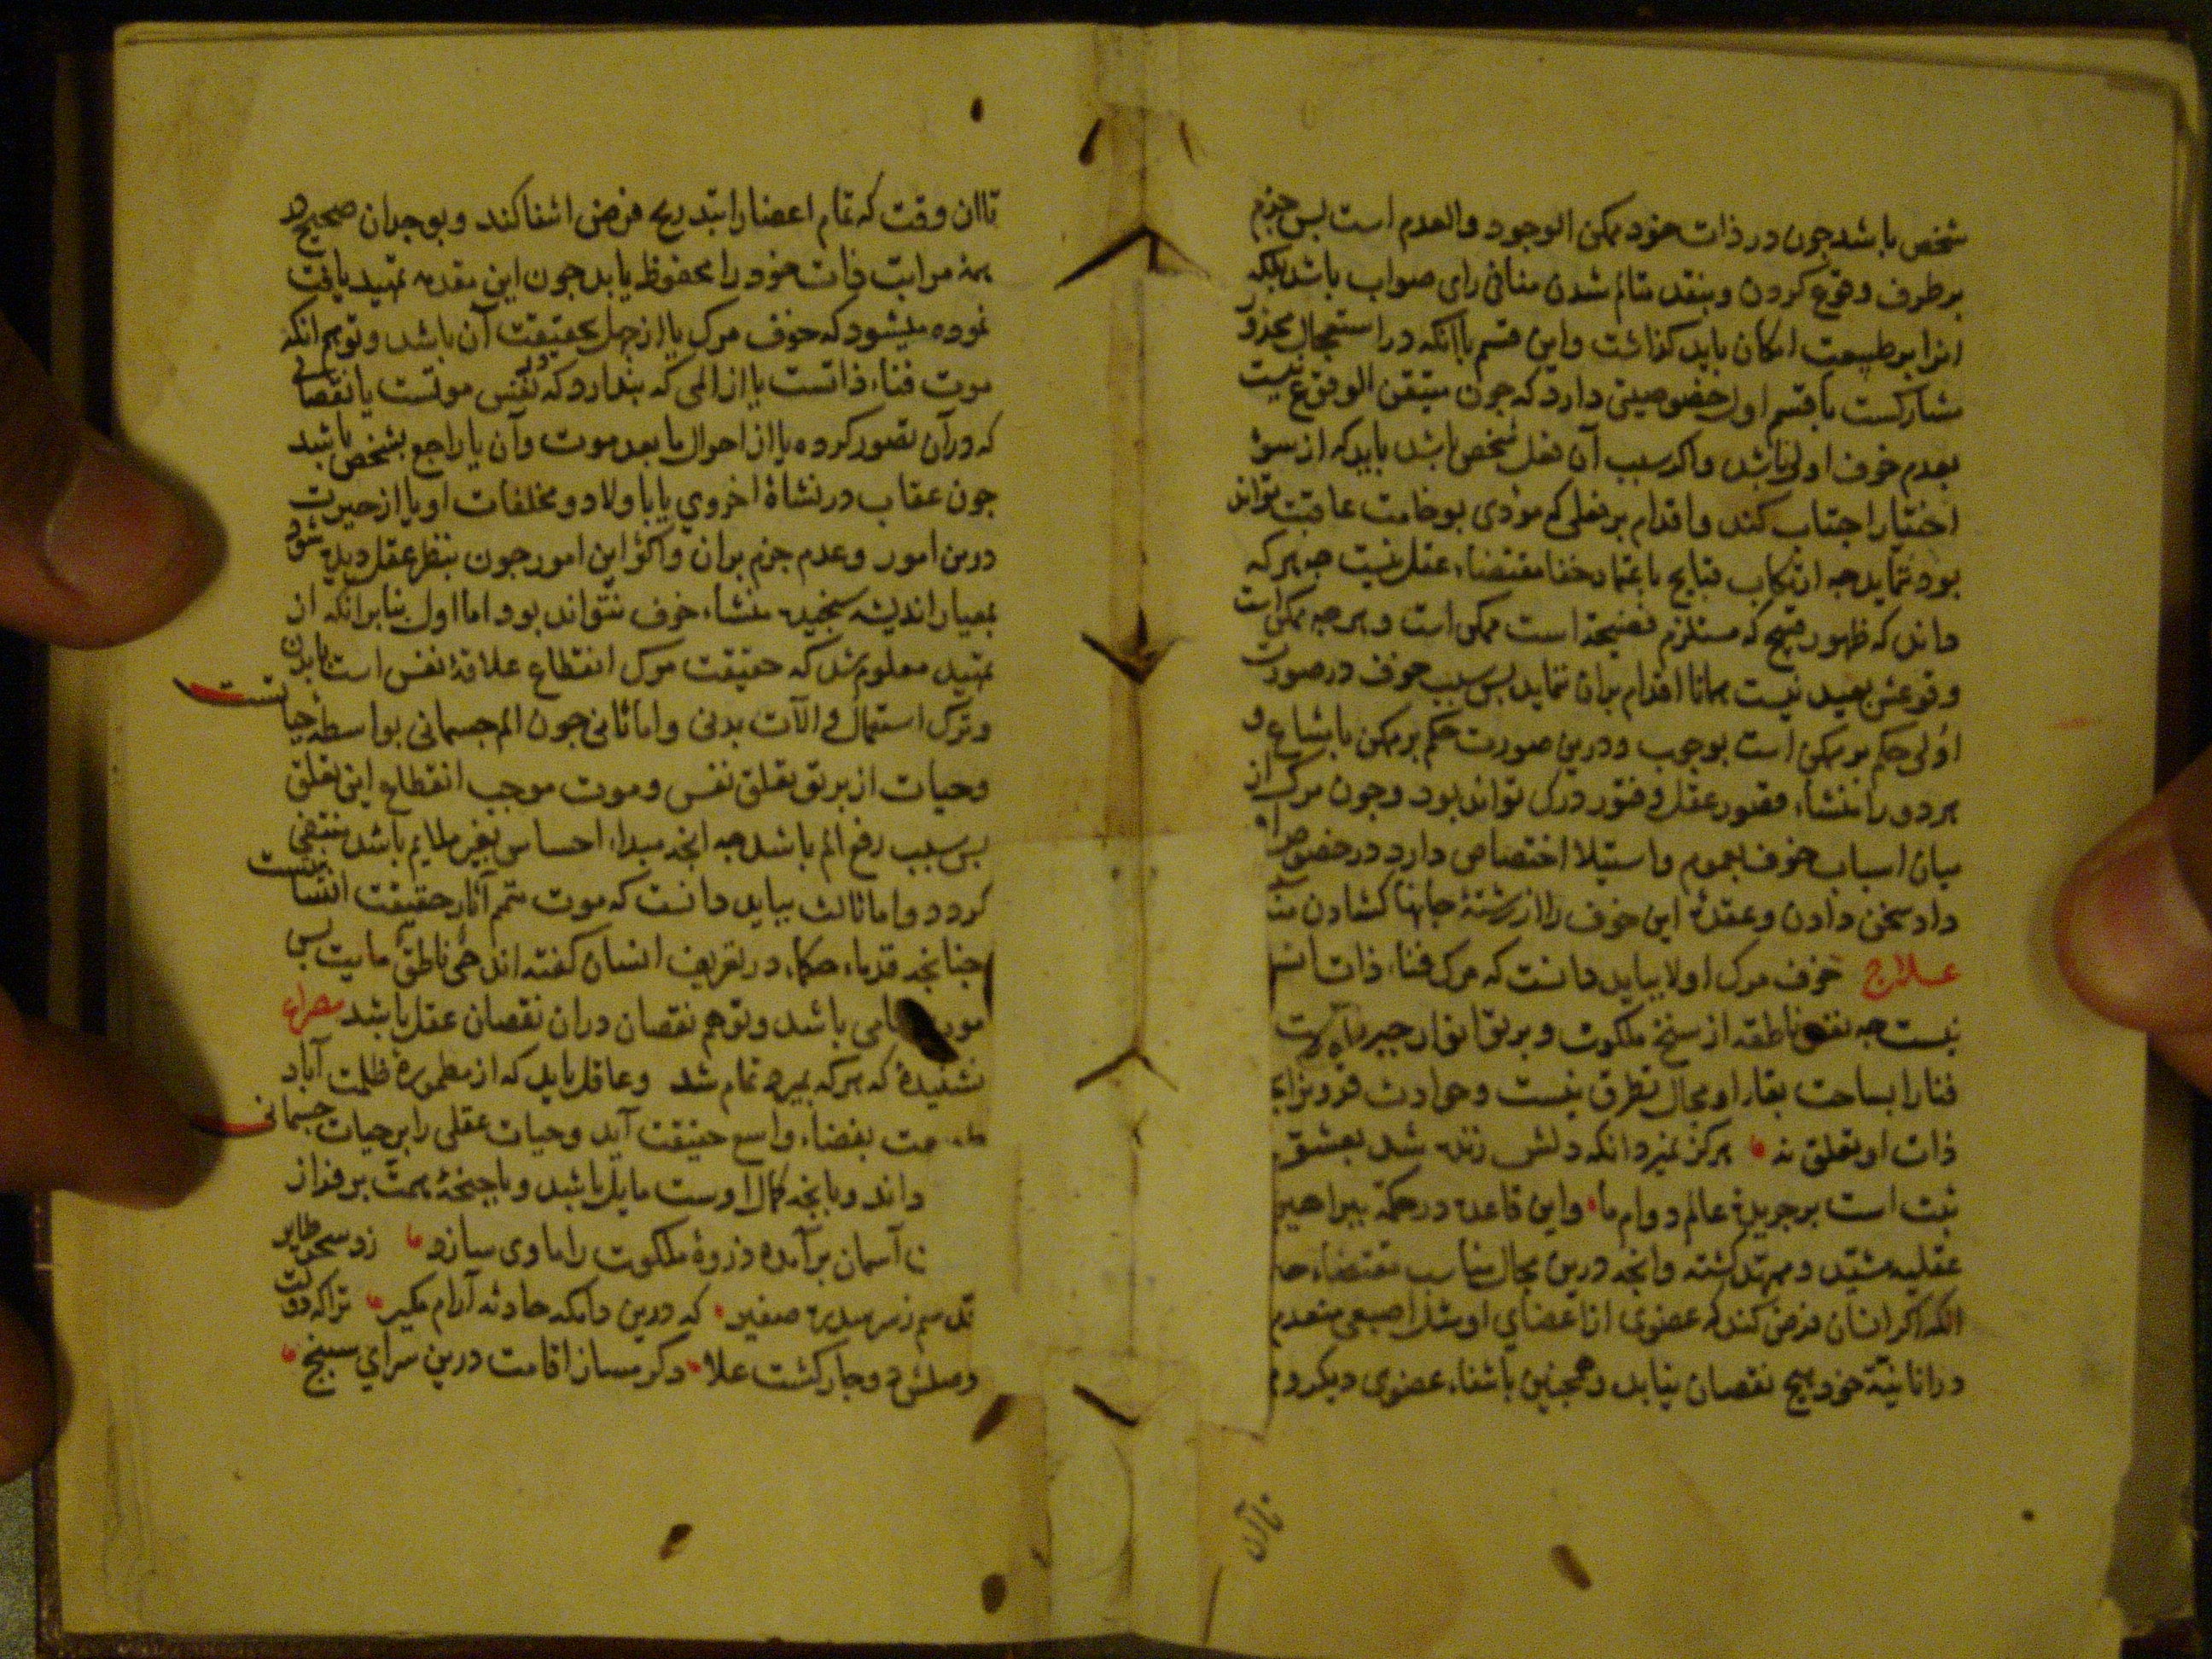 شخص باشد جون در ذات خود ممکن الوجود والعدم است بس جزم
بر طرف وقوع کردن و بنقد متالم شدن منافی رای صواب باشد بلکه
انرا بر طبیعت امکان باید کذاشت واین قسم با انکه در استعجال محذور
مشارکست با قسم اول خصوصیتی دارد که جون متیقن الوقوع نیست
بعدم خوف اولی باشد واکر سبب آن فعل شخص باشد باید که از سوء
اختیار اجتناب کند واقدام بر فعلی که مؤدی بوخامت عاقبت تواند
بود ننماید جه ارتکاب قبایح باعتماد خفا مقتضاء عقل نیست جه هر که
داند که ظهور قبیح که مستلزم فضیحة است ممکن است و هر جه ممکن است
وقوعش بعید نیست همانا اقدام بران ننماید بس سبب خوف در صورت
اولی حکم بر ممکن است بوجوب و درین صورت حکم بر ممکن بامتناع و
هر دو را منشاء قصور عقل و فتور درک تواند بود وجون مرک از
میان اسباب خوف بعموم واستیلا اختصاص دارد در خصوص او
داد سخن دادن وعقدهٔ این خوف را از رشتهٔ جانها کشادن
علاج خوف مرک اولا بباید دانست که مرک فناء ذات
نیست جه نفس ناطقه از سنخ ملکوت و برتو انوار جبر
فنا را بساحت بقاء او مجال تطرق نیست وحوادث
ذات او تعلق نه هرکز نمیرد انکه دلش زنده شد بعشق
ثبت است بر جریدهٔ عالم دوام ما واین قاعده در حکمة ببراهین
عقلیه مشیّد و ممهّد کشته وانجه درین مجال مناسب مقتضاء
انکه اکر انسان فرض کند که عضوی از اعضای او مثل اصبعی منعدم
در انانیّة خود هیچ نقصان نیابد و همجنین بانتفاء عضوی دیکر و
تا ان وقت که تمام اعضا را بتدریج فرض انتفا کند و بوجدان صحیح در
همهٔ مراتب ذات خود را محفوظ یابد جون این مقدمه تمهید یافت
نموده میشود که خوف مرک یا از جهل بحقیقت آن باشد و توهم انکه
موت فناء ذاتست یا از المی که بندارد که در نفس موتست یا نقصانی
که در آن تصور کرده یا از احوال ما بعد موت وآن یا راجع بشخص باشد
جون عقاب در نشاهٔ اخروی یا با ولاد و مخلفات او یا از حیرت
درین امور و عدم جزم بران واکثر این امور جون بنظر عقل دیده شود
بمعیار اندیشه سنجیده منشاء خوف نتواند بود اما اول بنابر انکه از
تمهید معلوم شد که حقیقت مرک انقطاع علاقهٔ نفس است با بدن
و ترک استعمال او الآت بدنی واما ثانی جون الم جسمانی بواسطهٔ حیاتست
و حیات از برتو تعلق نفس و موت موجب انقطاع این تعلق
بس سبب رفع الم باشد جه انجه مبداء احساس بغیر ملایم باشد منتفی
کردد واما ثالث بباید دانست که موت متمم آثار حقیقت انسانیست
جنانجه قدماء حکماء در تعریف انسان کفته اند حی ناطق مایت بس
باشد و توهم نقصان دران نقصان عقل باشد مصراع
نشنیدهٔ که هر که بمیرد تمام شد وعاقل باید که از مطمورهٔ ظلمت آباد
بفضاء واسع حقیقت آید و حیات عقلی را بر حیات جسمانی
داند و بانجه کمال اوست مایل باشد و باجنحهٔ همت بر فراز
آسمان برآمده ذروهٔ ملکوت را ماوی سازد
که درین دامکه حادثه آرام مکیر
دکر مساز اقامت درین سرای سبنج